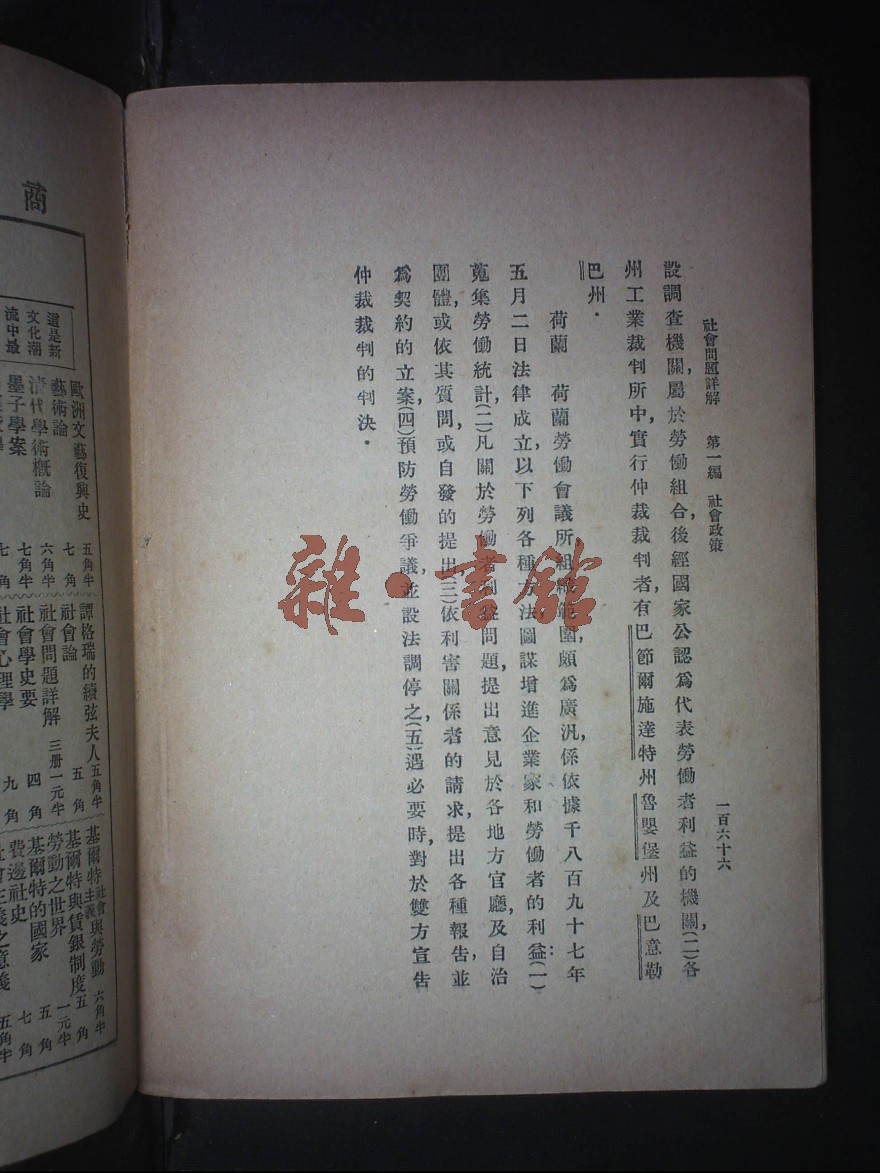 社會問題詳解　第一編　社會政策　一百六十六
設調查機關，屬於勞働組合，後經國家公認爲代表勞働者利益的機關，(二)各
州工業裁判所中，實行仲裁裁判者，有巴節爾施達特州魯嬰堡州及巴意勒
巴州．
荷蘭　荷蘭勞働會議所組織範圍，頗爲廣汎，係依據千八百九十七年
五月二日法律成立，以下列各種方法圖謀增進企業家和勞働者的利益：(一)
蒐集勞働統計，(二)凡關於勞働者利益問題，提出意見於各地方官廳，及自治
團體，或依其質問，或自發的提出，(三)依利害關係者的請求，提出各種報告，並
爲契約的立案，(四)預防勞働爭議，並設法調停之，(五)遇必要時，對於雙方宣告
仲裁裁判的判決．
雜·書館
商
還是新
文化潮
流中最
歐洲文藝復興史　五角半
藝術論　七角
清代學術概論　六角半
墨子學案　七角半
七角
譚格瑞的續弦夫人　五角半
社會論　五角
社會問題詳解　三册一元半
社會學史要　四角
社會心理學　九角
基爾特社會主義與勞動　六角半
基爾特與賃銀制度　五角
勞動之世界　一元半
基爾特的國家　五角
費邊社史　七角
社會主義之意義　五角半